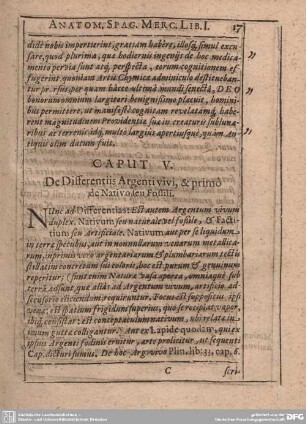 ANATOM. SPAG. MERC. LIB. I. 17
didè nobis impertierint, gratiam habere, illosq́, simul excu-
sare, quod plurima, quæ hodiernis ingenijs de hoc medica-
mento pervia sunt atq́, perspecta, eorum cognitionem ef-
fugerint quoniam Artis Chymicæ adminiculo destitueban-
tur prorsus, per quam hâcce ultimâ mundi senectâ, DEO
bonorum omnium largitori benignissimo placuit, homini-
bus permittere, ut manifestâ cognitam revelatamq́, habe-
rent magnitudinem Providentiæ suæ in creaturis
ribus ac terrenis idq́, multo largius apertiusque, quàm An-
tiquis olim datum fuit.
CAPUT V.
De Differentiis Argenti vivi, & primò
de Nativo seu Fossili.
NUnc ad Differentias: Est autem Argentum vivum
duplex. Nativum seu naturale vel fossile, & Facti-
tium seu Artificiale. Nativum aut per se liquidum
in terræ specubus, aut in nonnullarum venarum metallica-
rum, inprimis verò argentariarum & plumbariarum
stillatim concretum sui coloris, hoc est purum & genuinum
reperitur: sunt enim Naturæ vasa aperta, omniaque sub
terra
secu sorio eliciendum requiruntur. Focus est suppositus ipsi
venæ: est spatium frigidum superius, quo se recipiat vapor,
ibiq́, consistat vel concretum nativum, ubi relatæ in
unum guttæ colligantur. Aut ex Lapide quodam, qui ex
ipsius Argenti fodinis eruitur, arte prolicitur, ut sequenti
Cap. dicturi sumus. De hoc Arg. vivo Plin. lib. 33. cap. 6.
C scri-